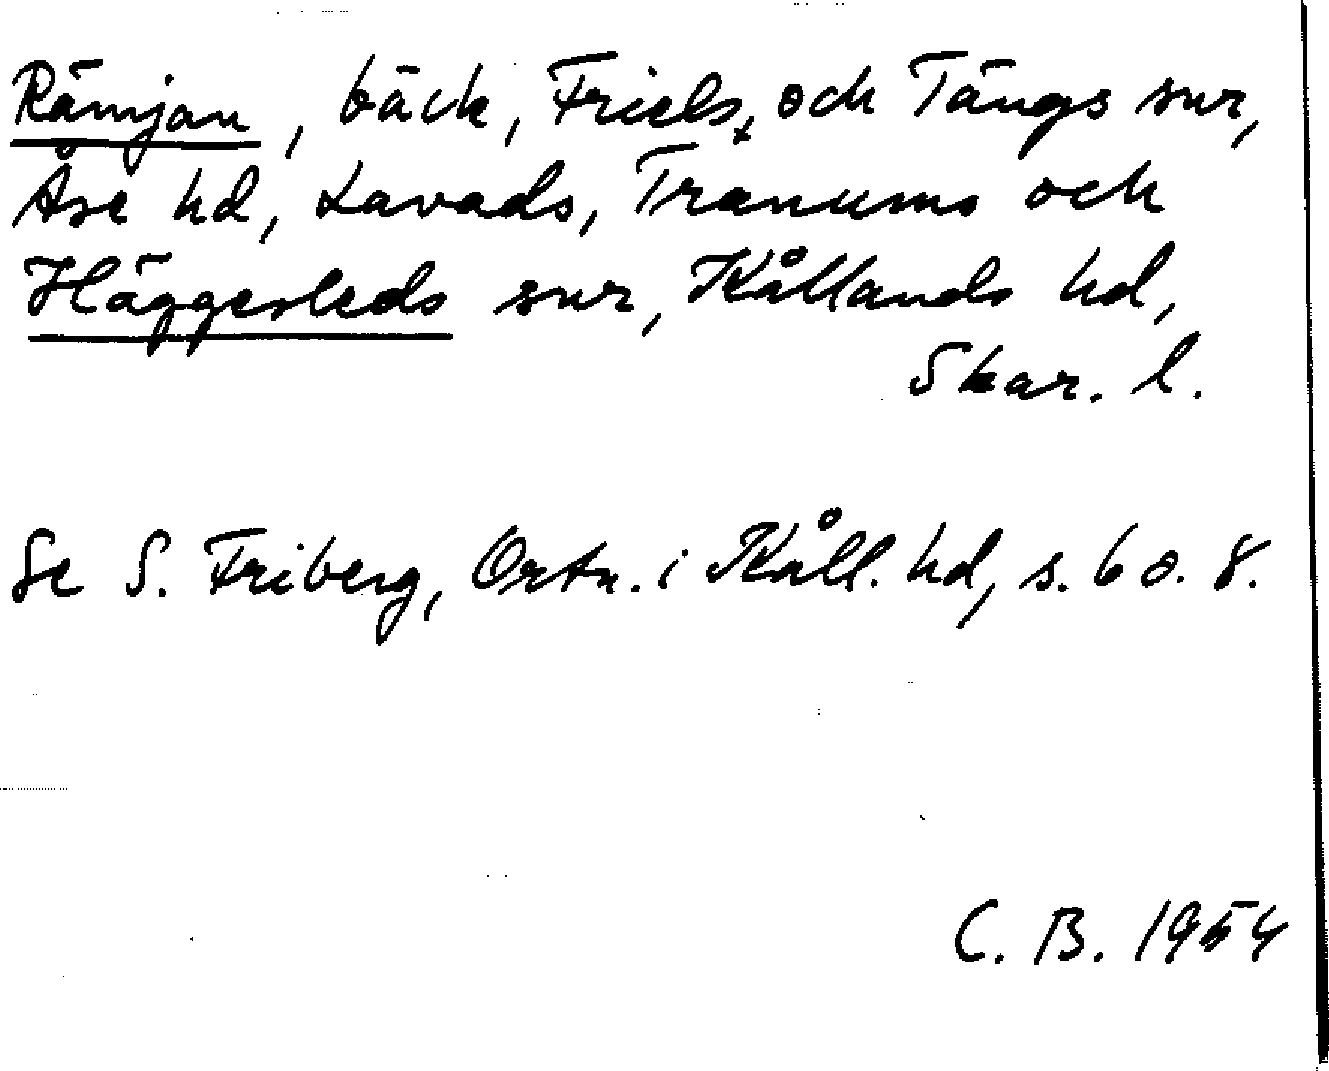 Rämjan, bäck, Friels, och Tängs snr,
Åse hd, Lavads, Tranums och
Häggesleds snr, Kållands hd,
Skar. l.
Se S. Friberg, Ortn. i Kåll. hd, s. 6 o. 8.
C. B. 1954